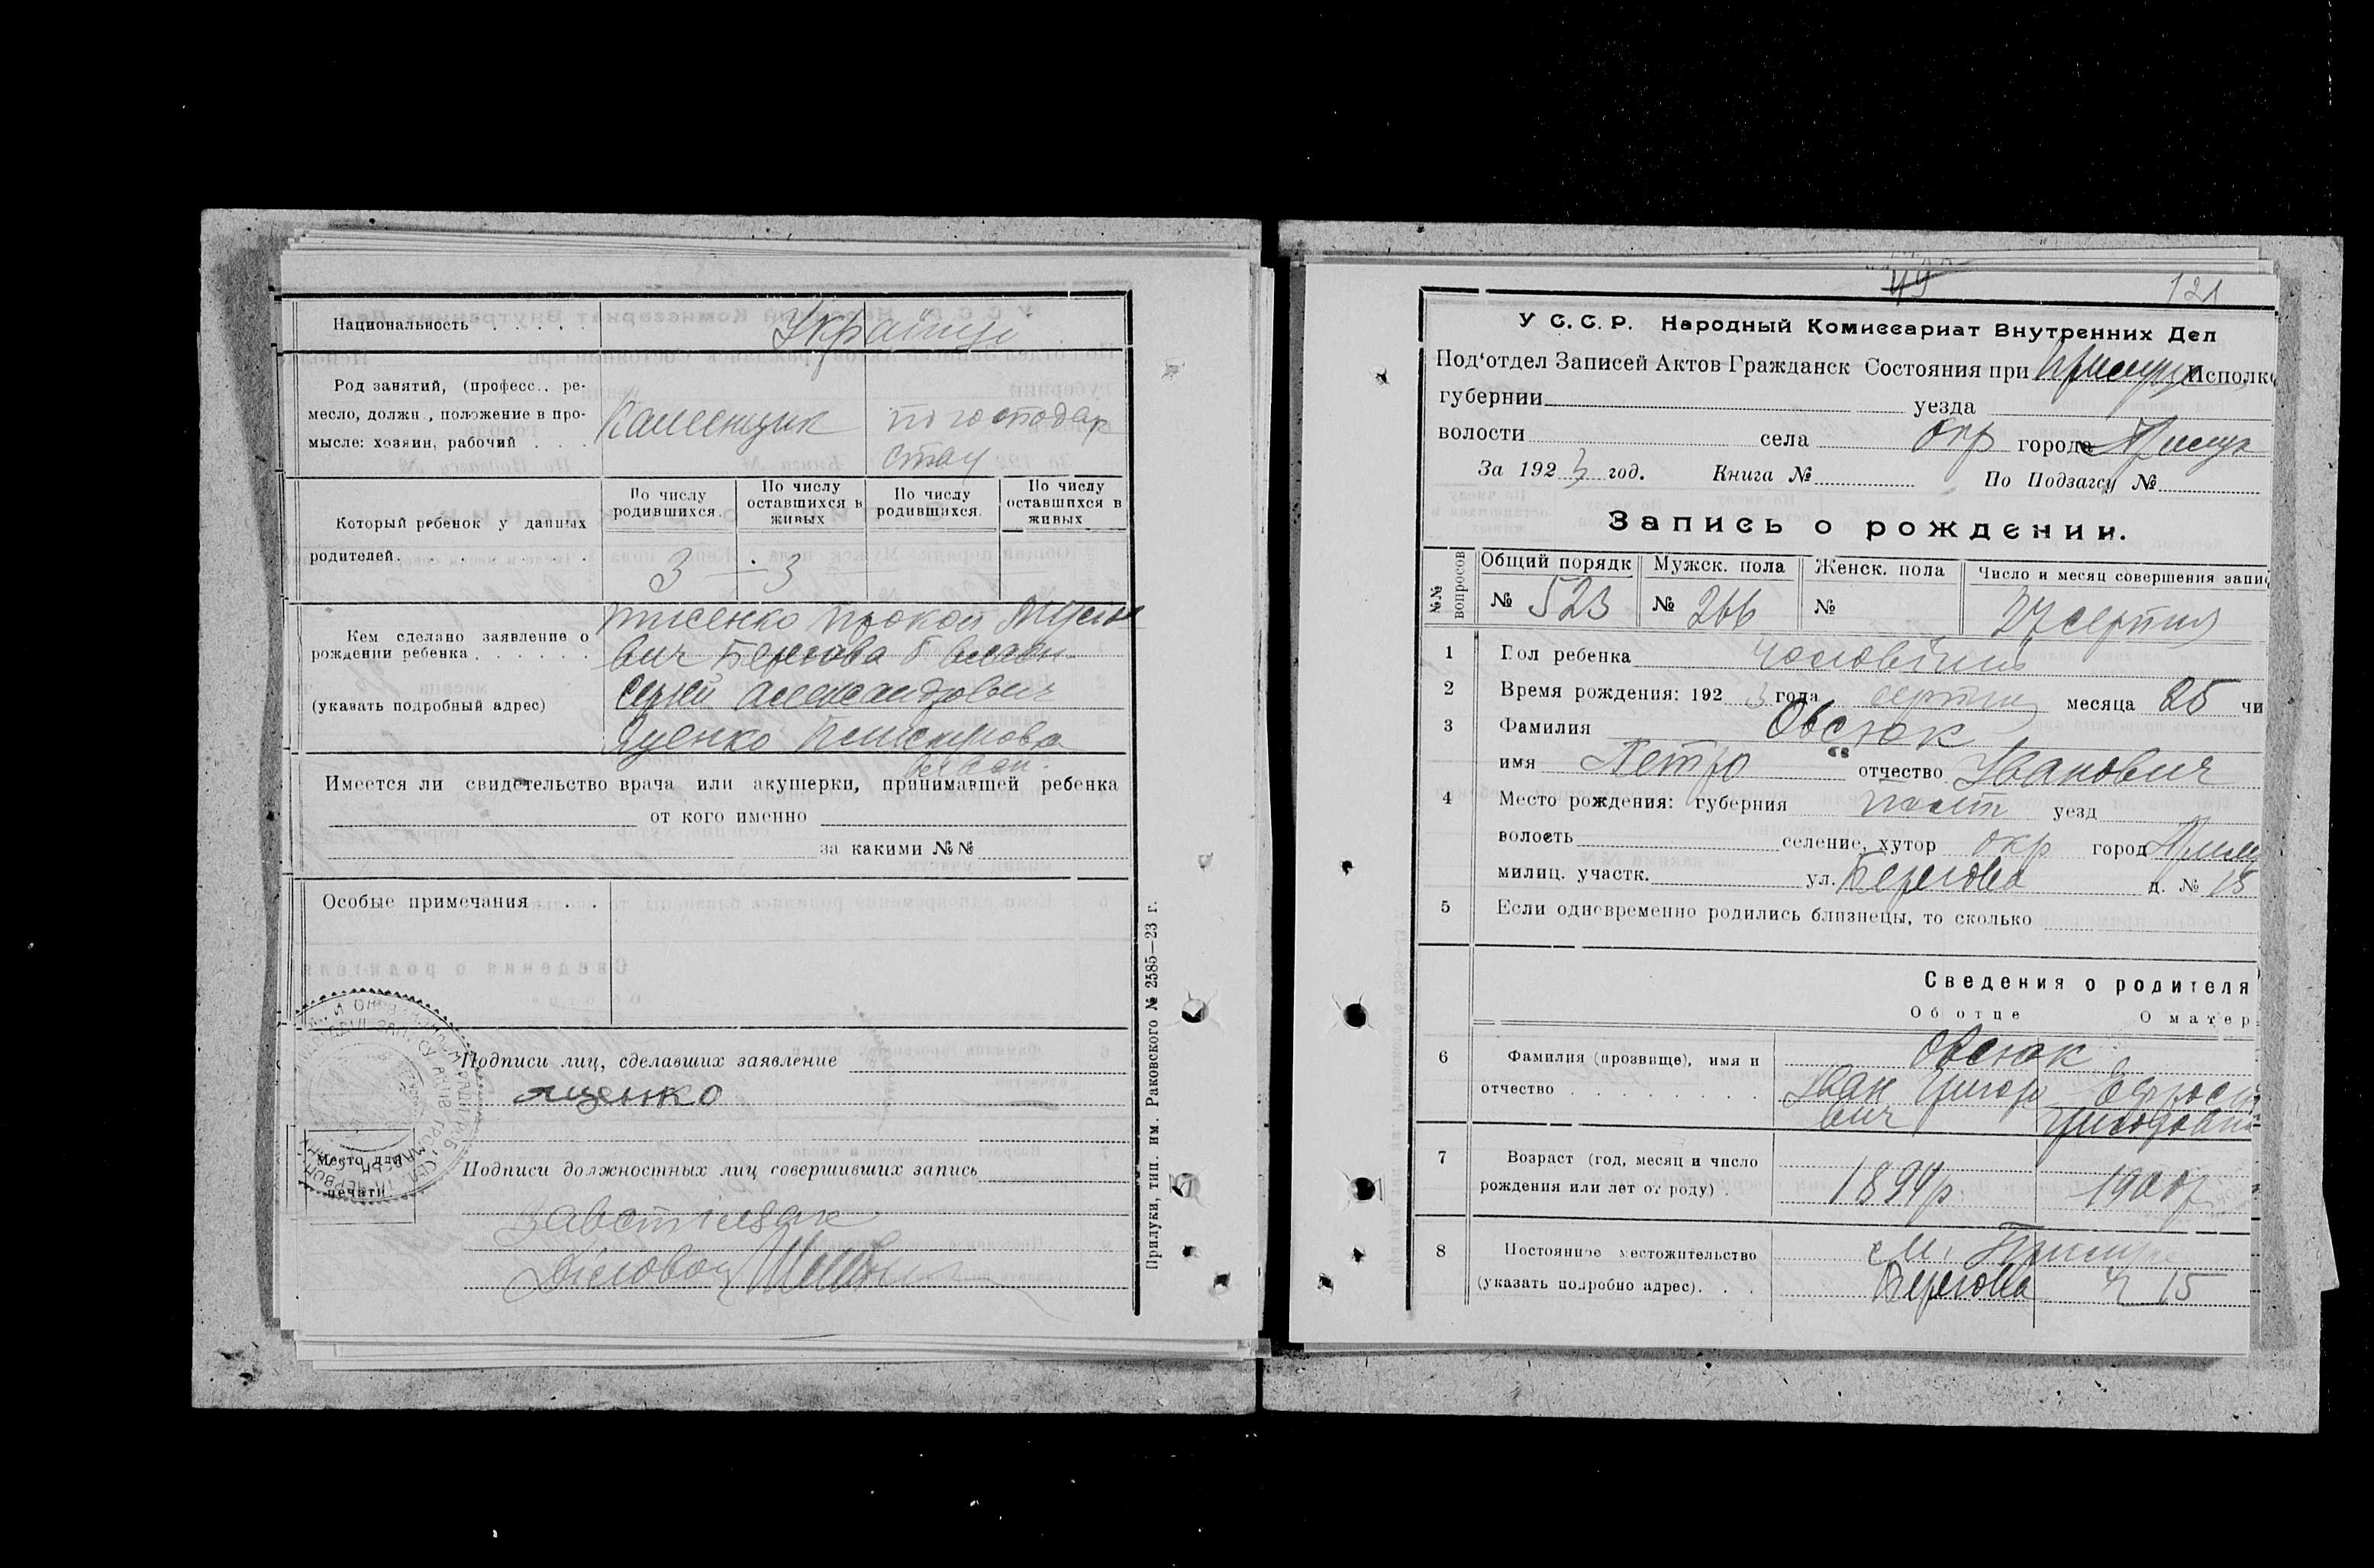 Национальность . . . . .
Українці
Род занятий, (професс., ре-
месло, должн., положение в про-
мысле: хозяин, рабочий . . .
Каменщик
по господар
ству
Который ребенок у данных
родителей. . . . . .
По числу родившихся.
По числу оставшихся в живых
По числу родившихся.
По числу оставшихся в живых
3 — 3
Кем сделано заявление о
рождении ребенка . . . . . .
(указать подробный адрес)
Прокоп
вич Берегова 6
Сергій Александрович
Яценко
Имеется ли свидетельство врача или акушерки, принимавшей ребенка
от кого именно
за какими №№
Особые примечания . . .
Подписи лиц, сделавших заявление
Яценко
Место для
печати
Подписи должностных лиц совершивших запись
Діловод
Прилуки, тип. им. Раковского № 2585—23 г.
49
121
У С. С. Р. Народный Комиссариат Внутренних Дел
Под'отдел Записей Актов Гражданск Состояния при Прилуц Исполк
губернии уезда
волости села окр города Прилук
За 1923 год. Книга № По Подзагсу №
Запись о рождении.
№№ вопросов
Общий порядк
№ 523
Мужск. пола
№ 266
Женск. пола
№
Число и месяц совершения запис
27 серпня
1 Пол ребенка чоловічий
2 Время рождения: 1923 года серпня месяца 25 чи
3 Фамилия Овсюк
имя Петро отчество Иванович
4 Место рождения: губерния Полт уезд
волость селение, хутор окр город Прилу
милиц. участк. ул. Берегова д. № 15
5 Если одновременно родились близнецы, то сколько
Сведения о родителя
Об отце О матер
6 Фамилия (прозвище), имя и
отчество . . . . . . . . .
Овсюк
Іван Григоро
вич
Ефросин
7 Возраст (год, месяц и число
рождения или лет от роду) .
1894 р. 1900 р
8 Постоянное местожительство
(указать подробно адрес). . .
м. Прилуки
Берегова ч 15